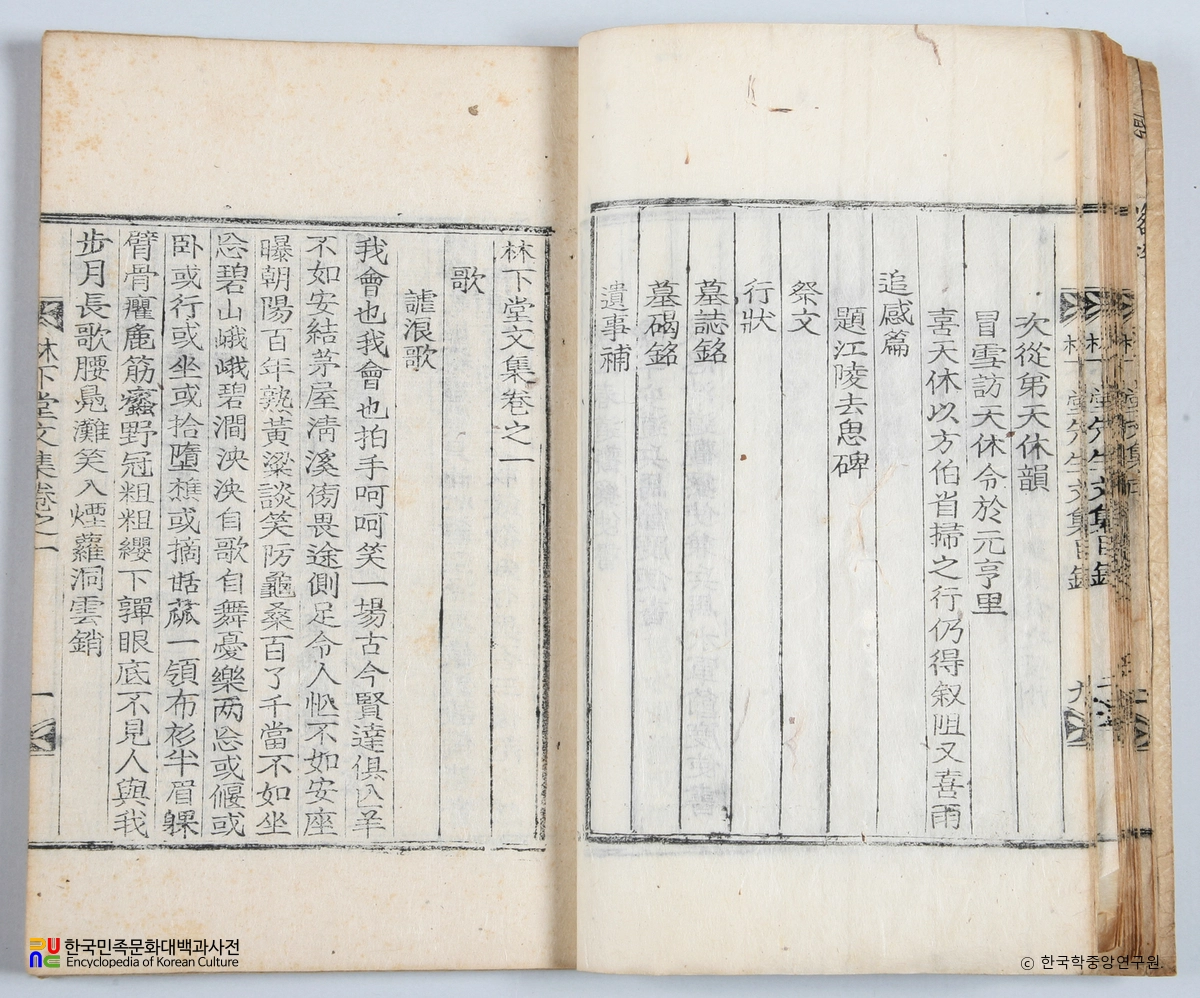 次從弟天休韻
冒雪訪天休令於元亨里
喜天休以方伯省掃之行仍得叙阻又喜雨
追感篇
題江陵去思碑
祭文
行狀
墓誌銘
墓碣銘
遺事補
林下堂文集卷之一
歌
謔浪歌
我會也我會也拍手呵呵笑一場古今賢達俱亡羊
不如安結茅屋淸溪傍畏途側足令人忙不如安座
曝朝陽百年熟黃粱談笑防龜桑百了千當不如坐
忘碧山峨峨碧澗泱泱自歌自舞憂樂两忘或偃或
卧或行或坐或拾墮樵或摘甛蓏一領布衫半眉躶
臂骨癯麁筋蠻野冠粗粗纓下嚲眼底不見人與我
步月長歌腰鳧灘笑入煙蘿洞雲銷
林下堂文集卷之一
一
林下堂先生文集目錄
九
한국민족문화대백과사전
Encyclopedia of Korean Culture
ⓒ 한국학중앙연구원.